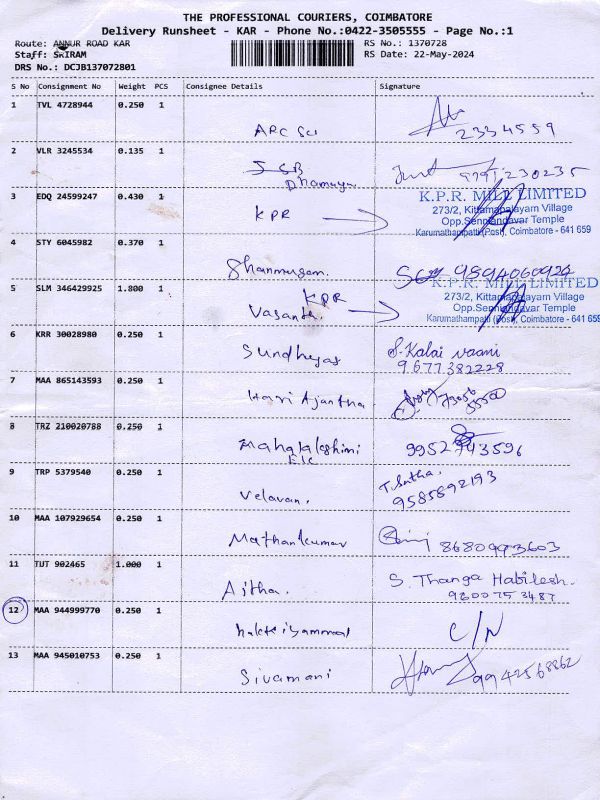 THE PROFESSIONAL COURIERS, COIMBATORE
Delivery Runsheet - KAR - Phone No.:0422-3505555 - Page No.:1
Route: ANNUR ROAD KAR
RS No.: 1370728
Staff: SRIRAM
RS Date: 22-May-2024
DRS No.: DCJB137072801
S No Consignment No Weight PCS Consignee Details Signature
1 TVL 4728944 0.250 1
ARC Sci 2334559
2 VLR 3245534 0.135 1
SSB
Dhamaya
3 EDQ 24599247 0.430 1
KPR
K.P.R. MILL LIMITED
273/2, Kittampalayam Village
Opp.Senniandavar Temple
Karumathampatti (Post), Coimbatore - 641 659
4 STY 6045982 0.370 1
Shanmugam. 9894060924
5 SLM 346429925 1.800 1
KPR
Vasanth.
K.P.R. MILL LIMITED
273/2, Kittampalayam Village
Opp.Senniandavar Temple
Karumathampatti (Post), Coimbatore - 641 659
6 KRR 30028980 0.250 1
S.Kalai vaani
9677382228
7 MAA 865143593 0.250 1
Hari Ajantha
8 TRZ 210020788 0.250 1
Mahalakshimi
Ele
9952743596
9 TRP 5379540 0.250 1
Velavan.
T.Sutha.
9585892193
10 MAA 107929654 0.250 1
Mathankumar 8680993603
11 TUT 902465 1.000 1
Ajtha.
S. Thanga Habilesh.
9800753487
12 MAA 944999770 0.250 1
C/N
13 MAA 945010753 0.250 1
Sivamani 9942568862